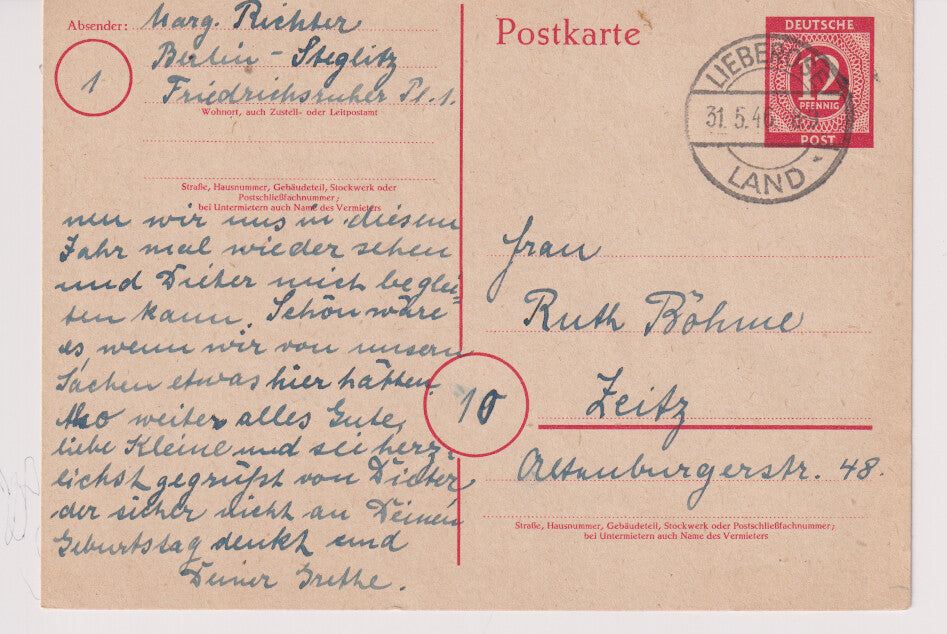 Absender: Marg. Richter
Berlin-Steglitz
Friedrichsruher Pl. 1.
Wohnort, auch Zustell- oder Leitpostamt
1
Straße, Hausnummer, Gebäudeteil, Stockwerk oder
Postschließfachnummer;
bei Untermietern auch Name des Vermieters
nen wir uns in diesem
Jahr mal wieder sehen
und Dieter mich beglei-
ten kann. Schön wäre
es, wenn wir von unsern
Sachen etwas hier hätten.
Also weiter alles Gute,
liebe Kleine und sei herz-
lichst gegrüßt von Dieter
der sicher nicht an Deinen
Geburtstag denkt und
Deiner Grethe.
Postkarte
DEUTSCHE
12
PFENNIG
POST
31.5.46
LAND
Frau
Ruth Böhme
10
Zeitz
Altenburgerstr. 48.
Straße, Hausnummer, Gebäudeteil, Stockwerk oder Postschließfachnummer;
bei Untermietern auch Name des Vermieters